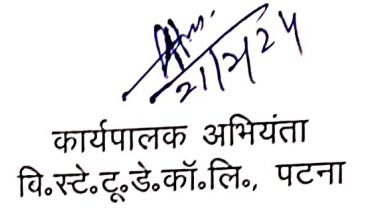 21/2/24
कार्यपालक अभियंता
वि०स्टे०टू०डे०कॉ०लि०, पटना